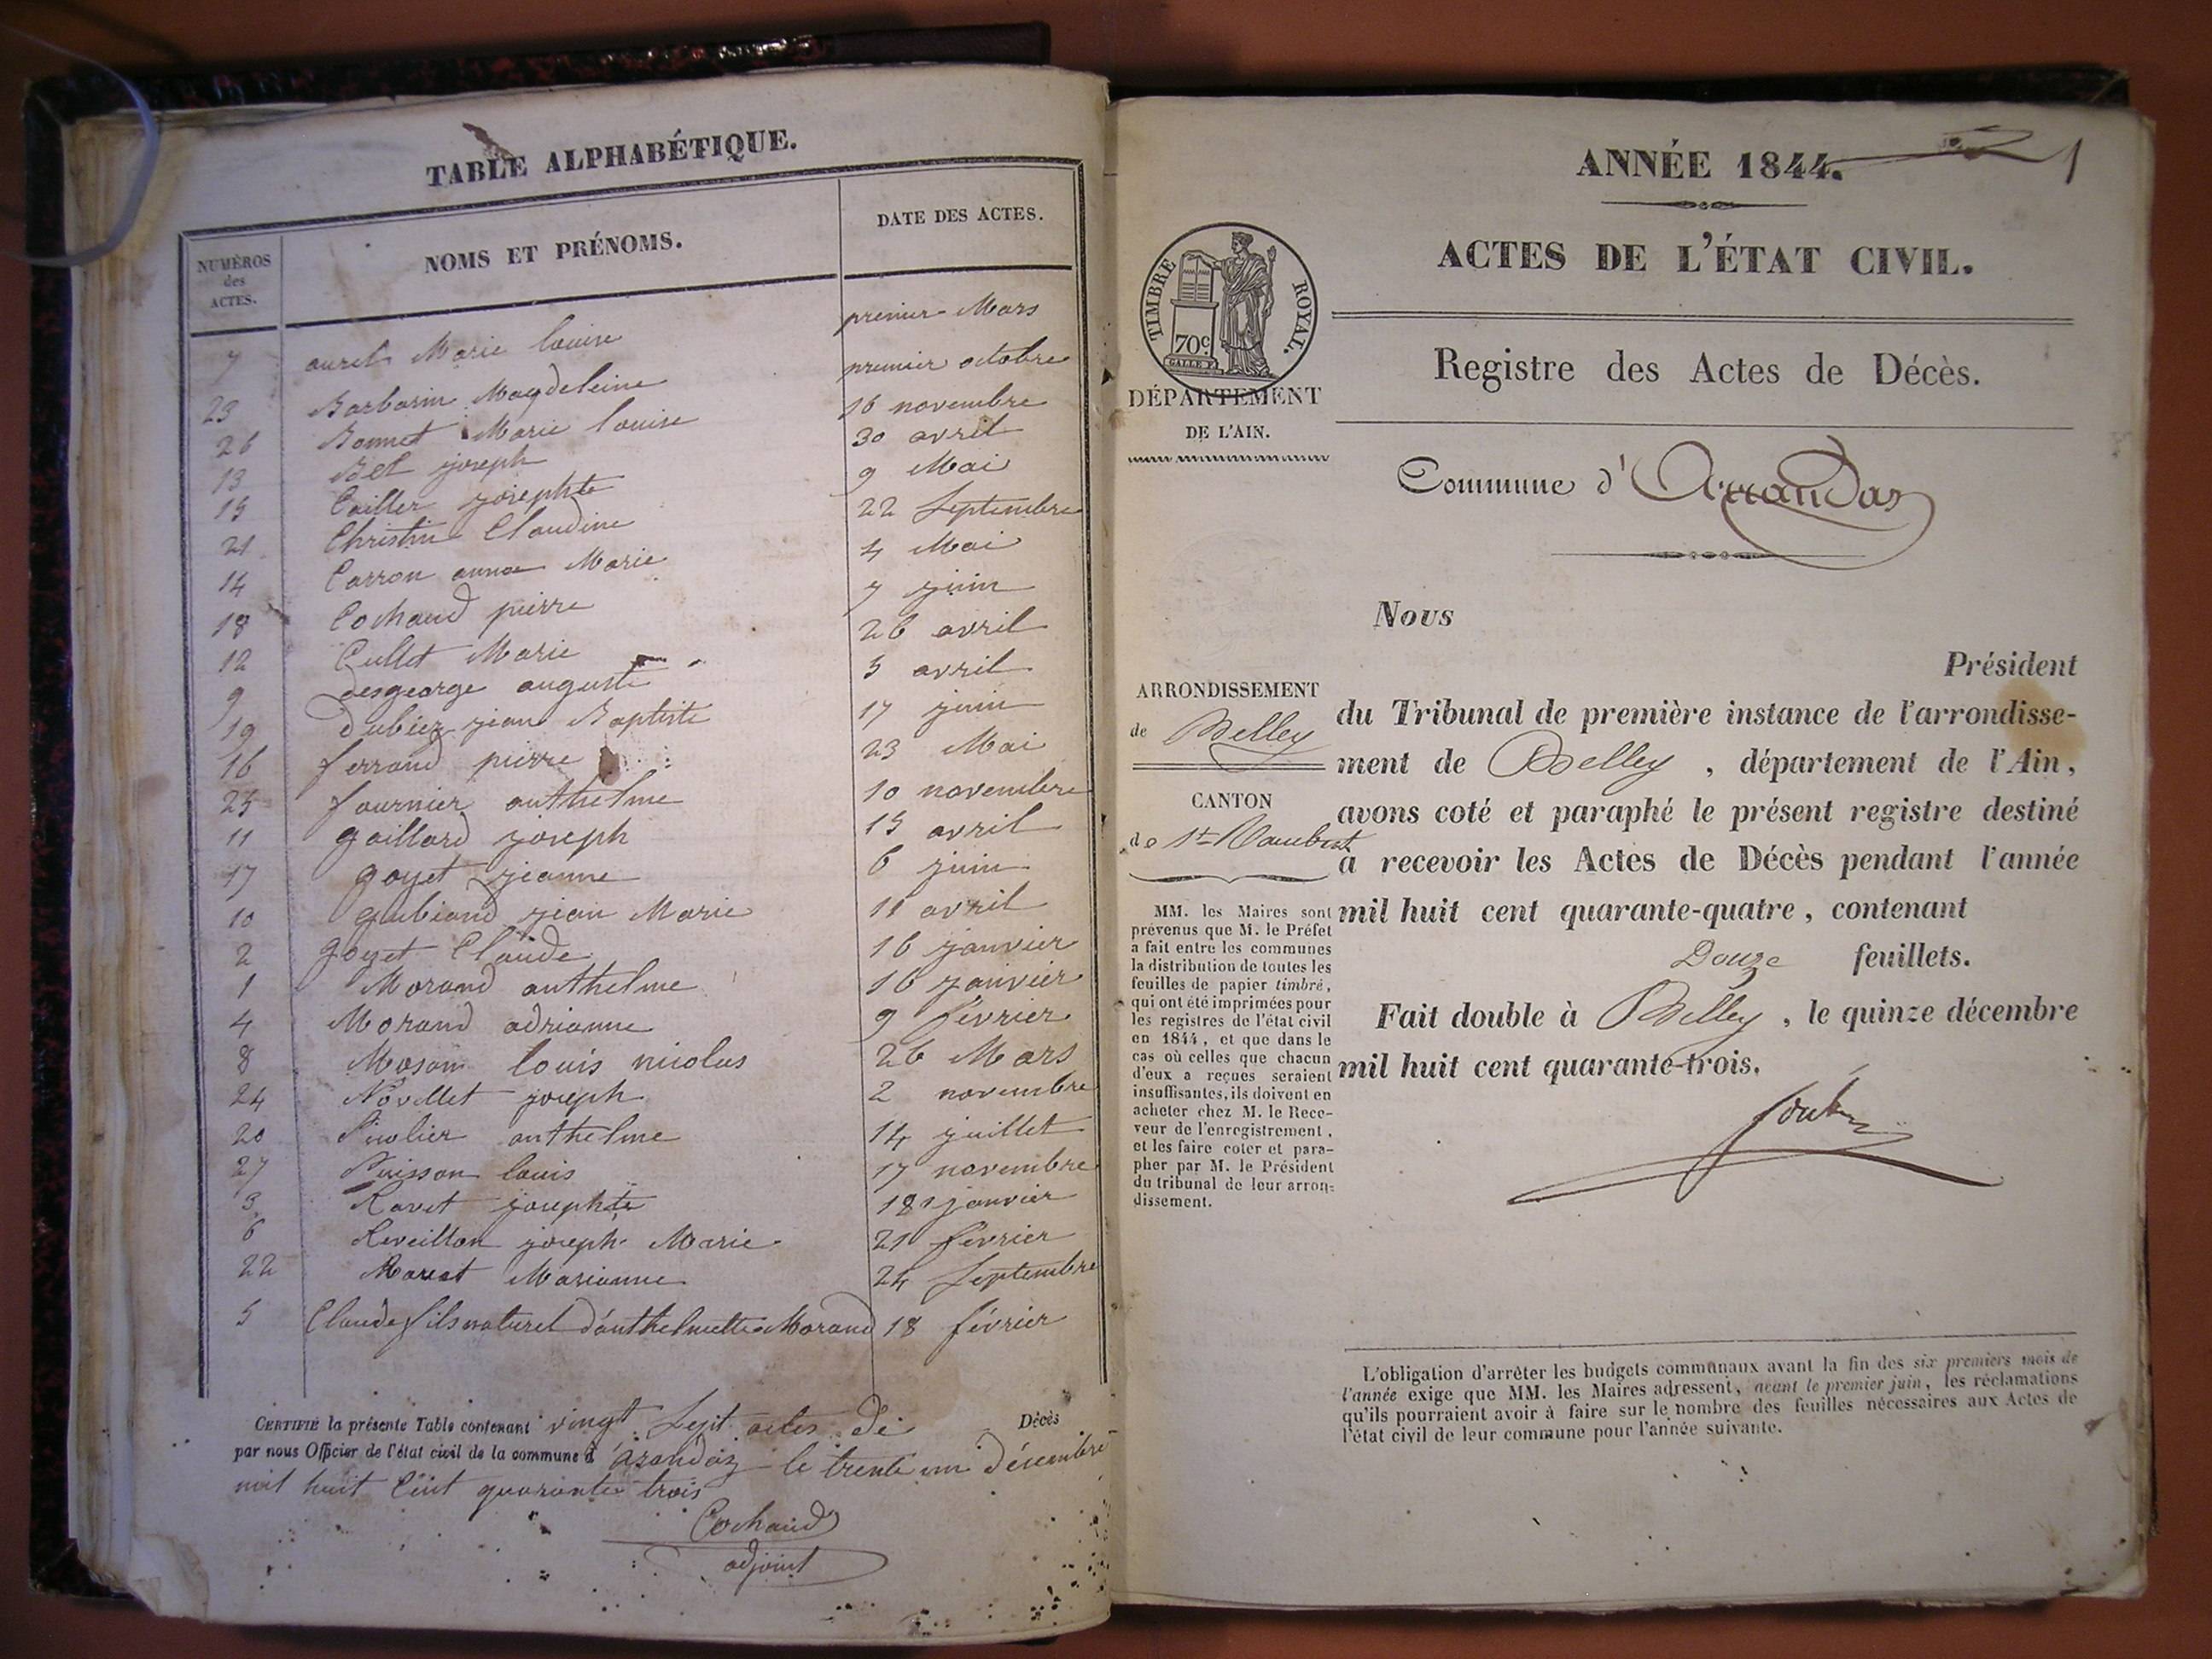 TABLE ALPHABÉTIQUE.
NUMÉROS des ACTES. NOMS ET PRÉNOMS. DATE DES ACTES.
7 aurel Marie louise premier Mars
23 Barbarin Magdeleine premier octobre
26 Bonnet Marie louise 16 novembre
13 Bel joseph 30 avril
15 Cailler josephte 9 Mai
21 Christin Claudine 22 Septembre
14 Carron anna Marie 4 Mai
18 Cochaud pierre 7 juin
12 Cullet Marie 26 avril
9 desgeorge auguste 5 avril
19 dubiez jean Baptiste 17 juin
16 ferrand pierre 23 Mai
25 fournier anthelme 10 novembre
11 gaillard joseph 15 avril
17 goyet jeanne 6 juin
10 gubiand jean Marie 11 avril
2 goyet Claude 16 janvier
1 Morand anthelme 16 janvier
4 Morand adrianne 9 février
8 louis nicolas 26 Mars
24 Novellet joseph 2 novembre
20 anthelme 14 juillet
27 Puisson louis 17 novembre
3 Ravet josephte 18 janvier
6 Reveillon joseph Marie 21 février
22 Marianne 24 Septembre
5 Claude fils naturel d'anthelmette Morand 18 février
CERTIFIÉ la présente Table contenant vingt Sept actes de Décès
par nous Officier de l'état civil de la commune d'arandaz le trente un décembre
mil huit Cent quarante trois
Cochaud
adjoint
ANNÉE 1844.
1
ACTES DE L'ÉTAT CIVIL.
TIMBRE ROYAL.
70c
GALLE F.
DÉPARTEMENT
DE L'AIN.
Registre des Actes de Décès.
Commune d'Arrandas
ARRONDISSEMENT
de Belley
CANTON
de St Rambert
MM. les Maires sont
prévenus que M. le Préfet
a fait entre les communes
la distribution de toutes les
feuilles de papier timbré,
qui ont été imprimées pour
les registres de l'état civil
en 1844, et que dans le
cas où celles que chacun
d'eux a reçues seraient
insuffisantes, ils doivent en
acheter chez M. le Rece-
veur de l'enregistrement,
et les faire coter et para-
pher par M. le Président
du tribunal de leur arron-
dissement.
Nous
Président
du Tribunal de première instance de l'arrondisse-
ment de Belley, département de l'Ain,
avons coté et paraphé le présent registre destiné
à recevoir les Actes de Décès pendant l'année
mil huit cent quarante-quatre, contenant
Douze feuillets.
Fait double à Belley, le quinze décembre
mil huit cent quarante-trois.
L'obligation d'arrêter les budgets communaux avant la fin des six premiers mois de
l'année exige que MM. les Maires adressent, avant le premier juin, les réclamations
qu'ils pourraient avoir à faire sur le nombre des feuilles nécessaires aux Actes de
l'état civil de leur commune pour l'année suivante.